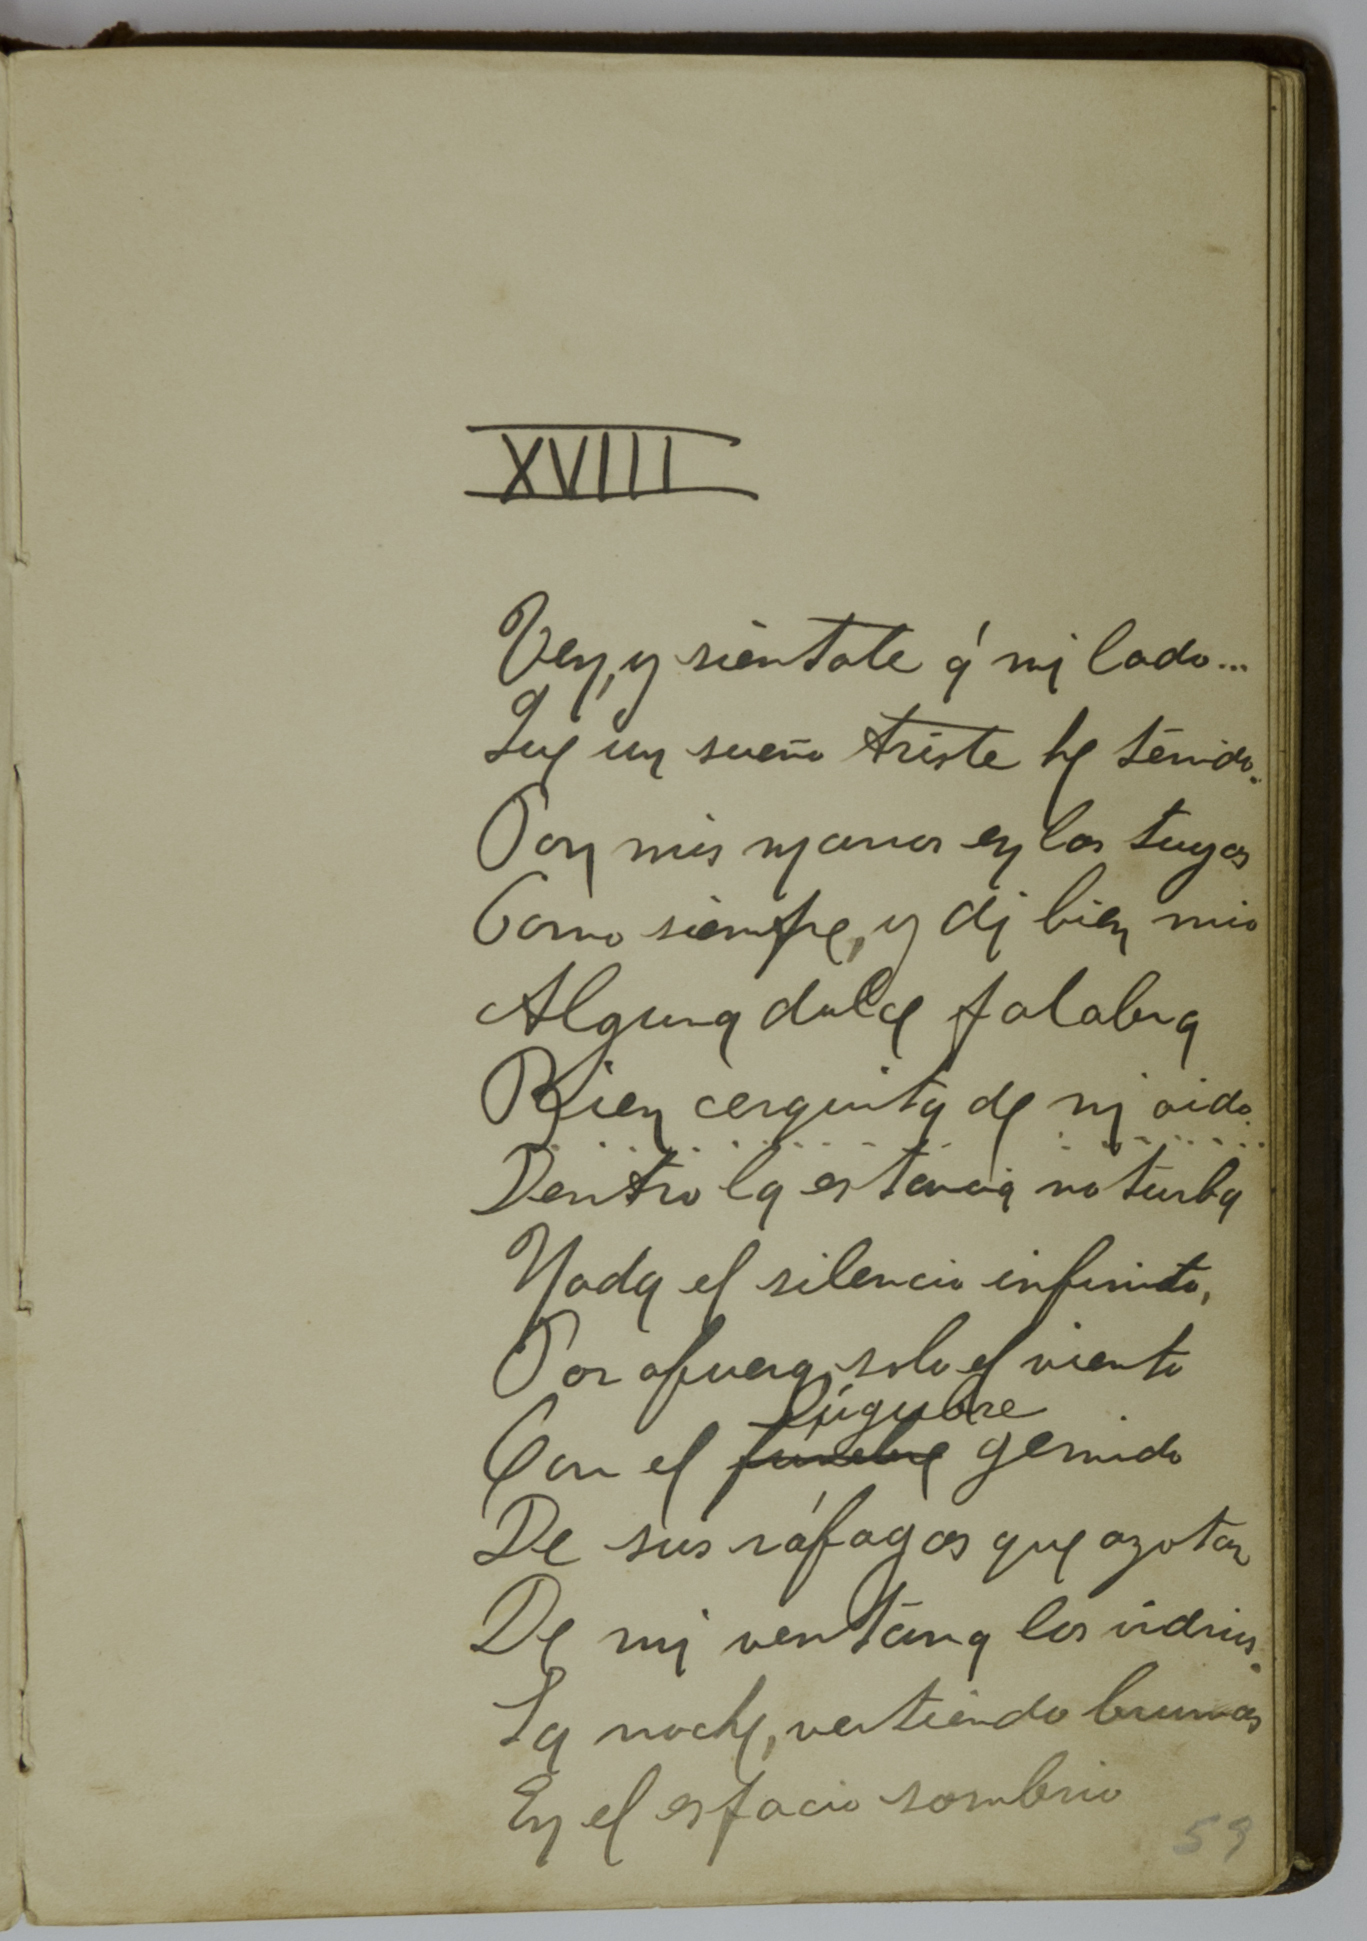 XVIII
Ven, y sientate á mi lado...
Que un sueño triste he tenido.
Pon mis manos en las tuyas
Como siempre, y di bien mio
Alguna dulce palabra
Bien cerquita de mi oido.
. . . . . . . . . . . . . . . . . .
Dentro la estancia no turba
Nada el silencio infinito,
Por afuera, solo el viento
lúgubre
Con el fúnebre gemido
De sus ráfagas que azotan
De mi ventana los vidrios.
La noche, vertiendo brumas
En el espacio sombrio
59